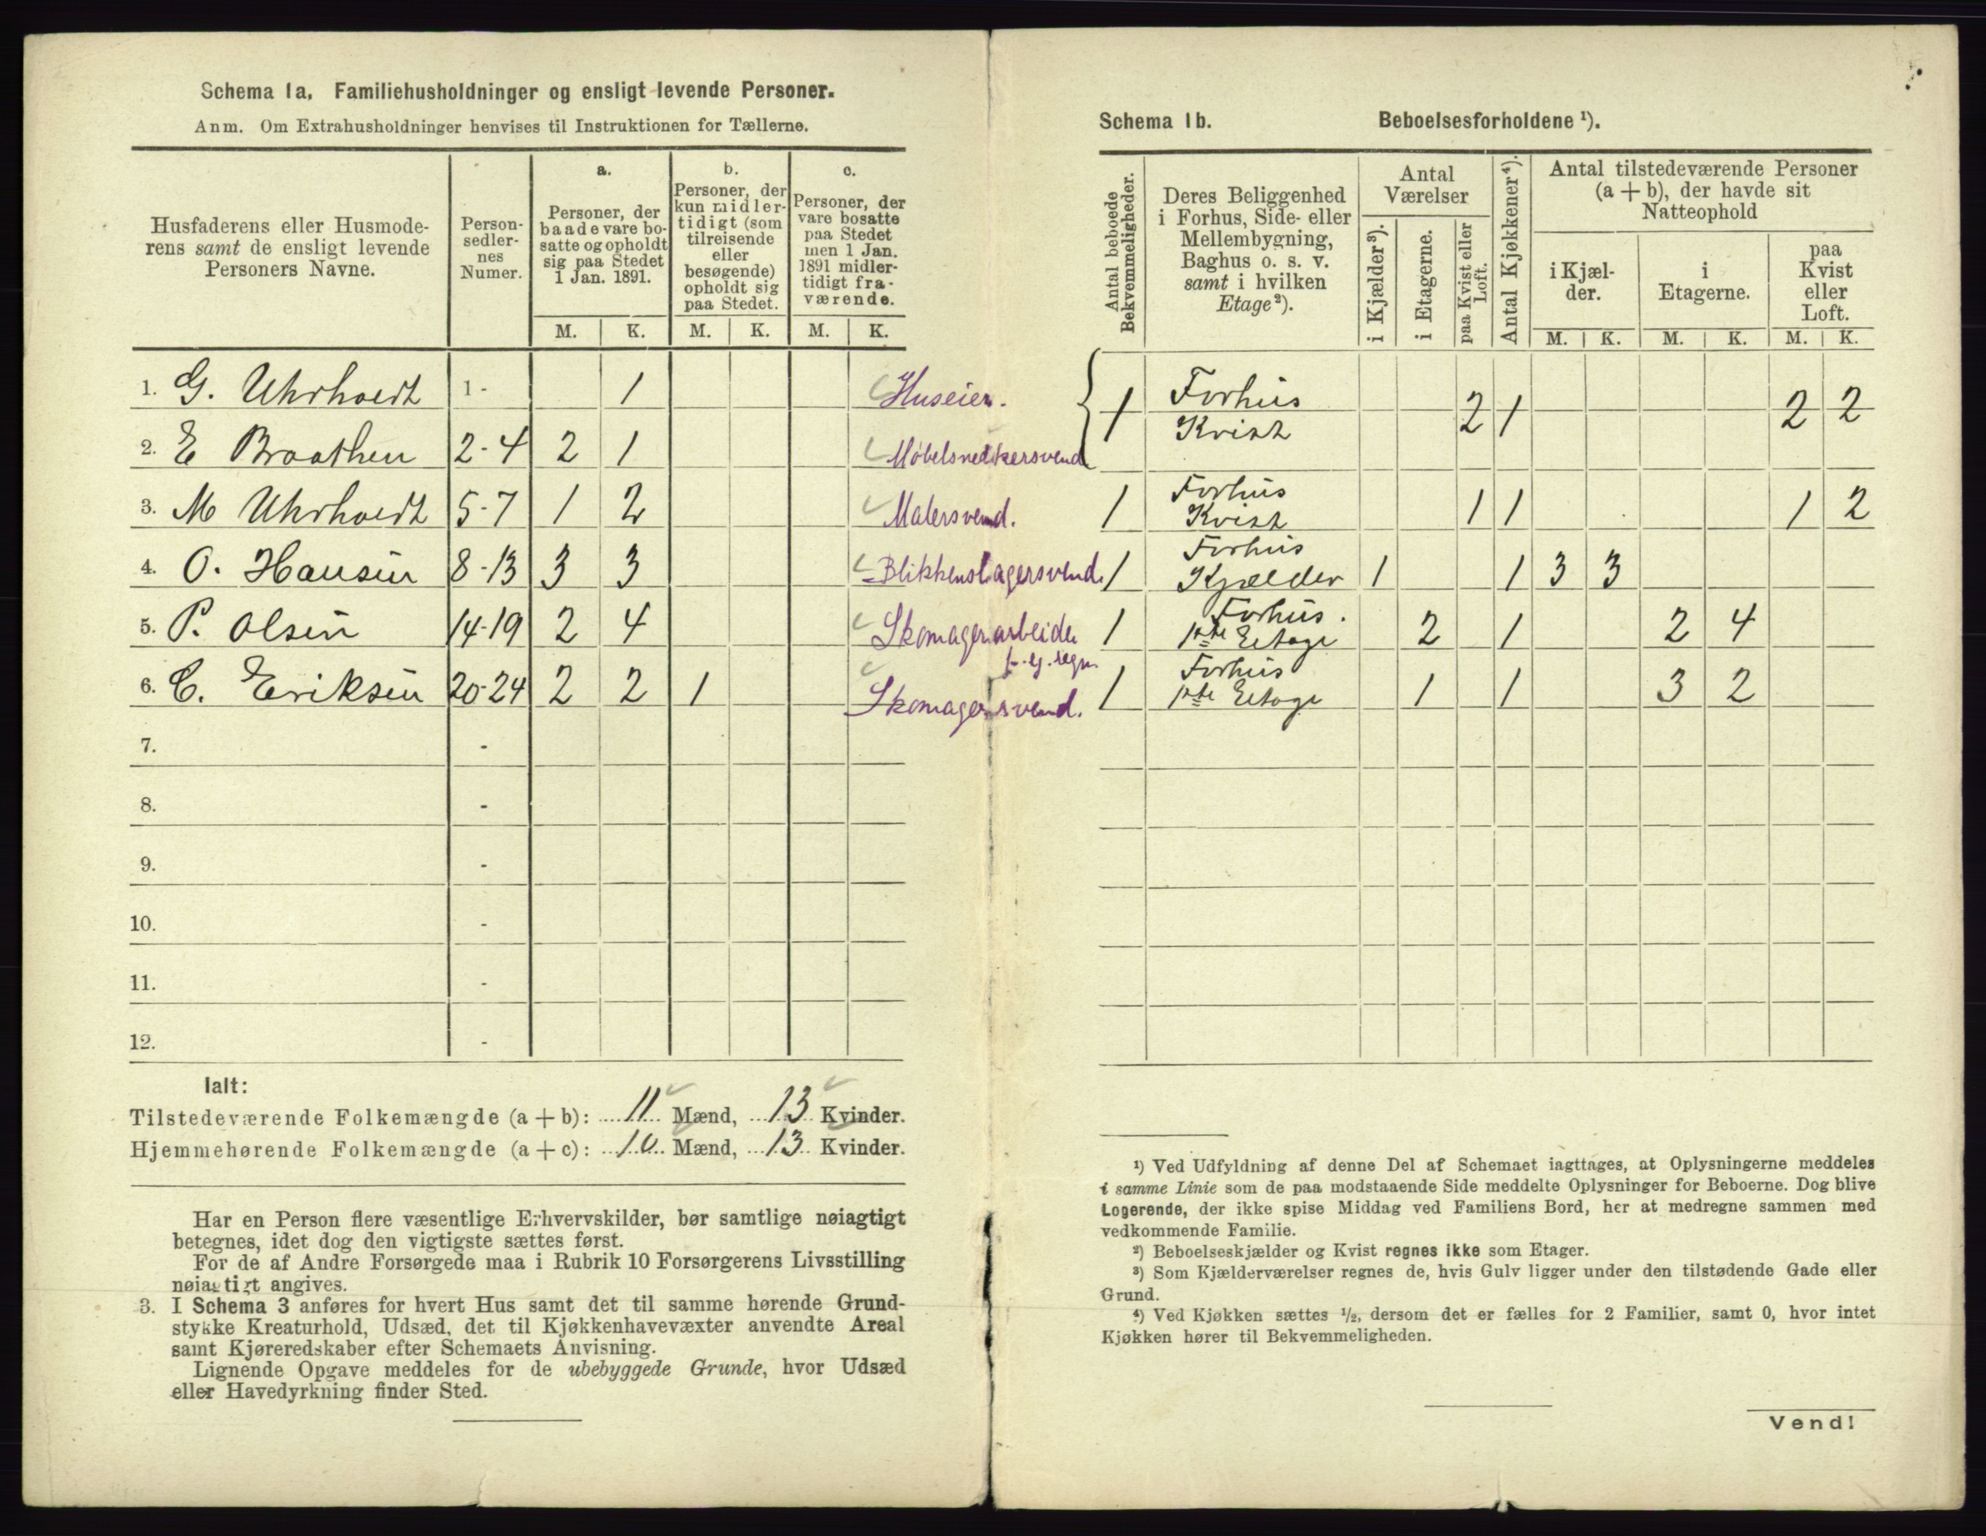 Schema 1a. Familiehusholdninger og ensligt levende Personer.
Anm. Om Extrahusholdninger henvises til Instruktionen for Tællerne.
Husfaderens eller Husmoderens samt de ensligt levende Personers Navne.
Personsedlernes Numer.
a. Personer, der baade vare bosatte og opholdt sig paa Stedet 1 Jan. 1891.
b. Personer, der kun midlertidigt (som tilreisende eller besøgende) opholdt sig paa Stedet.
c. Personer, der vare bosatte paa Stedet men 1 Jan. 1891 midlertidigt fraværende.
M. K. M. K. M. K.
1. G. Uhrhoedt 1 - 1 Huseier.
2. E Braathen 2-4 2 1 Møbelsnedkersvend
3. M Uhrhoedt 5-7 1 2 Malersvend.
4. O. Hansen 8-13 3 3 Blikkenslagersvend.
5. P. Olsen 14-19 2 4 Skomagerarbeide
f. eg. regn.
6. C. Eriksen 20-24 2 2 1 Skomagersvend.
7. -
8. -
9. -
10. -
11. -
12. -
Ialt:
Tilstedeværende Folkemængde (a + b): 11 Mænd, 13 Kvinder.
Hjemmehørende Folkemængde (a + c): 10 Mænd, 13 Kvinder.
Har en Person flere væsentlige Erhvervskilder, bør samtlige nøiagtigt
betegnes, idet dog den vigtigste sættes først.
For de af Andre Forsørgede maa i Rubrik 10 Forsørgerens Livsstilling
nøiagtigt angives.
3. I Schema 3 anføres for hvert Hus samt det til samme hørende Grund-
stykke Kreaturhold, Udsæd, det til Kjøkkenhavevæxter anvendte Areal
samt Kjøreredskaber efter Schemaets Anvisning.
Lignende Opgave meddeles for de ubebyggede Grunde, hvor Udsæd
eller Havedyrkning finder Sted.
Schema 1b. Beboelsesforholdene ¹).
Antal beboede Bekvemmeligheder.
Deres Beliggenhed i Forhus, Side- eller Mellembygning, Baghus o. s. v. samt i hvilken Etage²).
Antal Værelser
i Kjælder³).
i Etagerne.
paa Kvist eller Loft.
Antal Kjøkkener⁴).
Antal tilstedeværende Personer (a + b), der havde sit Natteophold
i Kjælder.
i Etagerne.
paa Kvist eller Loft.
M. K. M. K. M. K.
1 Forhus Kvist 2 1 2 2
1 Forhus Kvist 1 1 1 2
1 Forhus Kjælder 1 1 3 3
1 Forhus. 1ste Etage 2 1 2 4
1 Forhus 1ste Etage 1 1 3 2
¹) Ved Udfyldning af denne Del af Schemaet iagttages, at Oplysningerne meddeles
i samme Linie som de paa modstaaende Side meddelte Oplysninger for Beboerne. Dog blive
Logerende, der ikke spise Middag ved Familiens Bord, her at medregne sammen med
vedkommende Familie.
²) Beboelseskjælder og Kvist regnes ikke som Etager.
³) Som Kjælderværelser regnes de, hvis Gulv ligger under den tilstødende Gade eller
Grund.
⁴) Ved Kjøkken sættes ½, dersom det er fælles for 2 Familier, samt 0, hvor intet
Kjøkken hører til Bekvemmeligheden.
Vend!